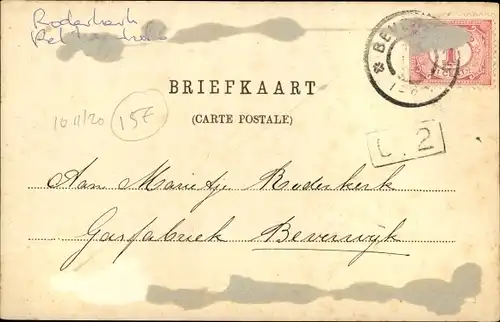 Roderkerk
BRIEFKAART
(CARTE POSTALE)
10 11/20
15E
C. 2
Aan Marietje Roderkerk
Gasfabriek Beverwijk